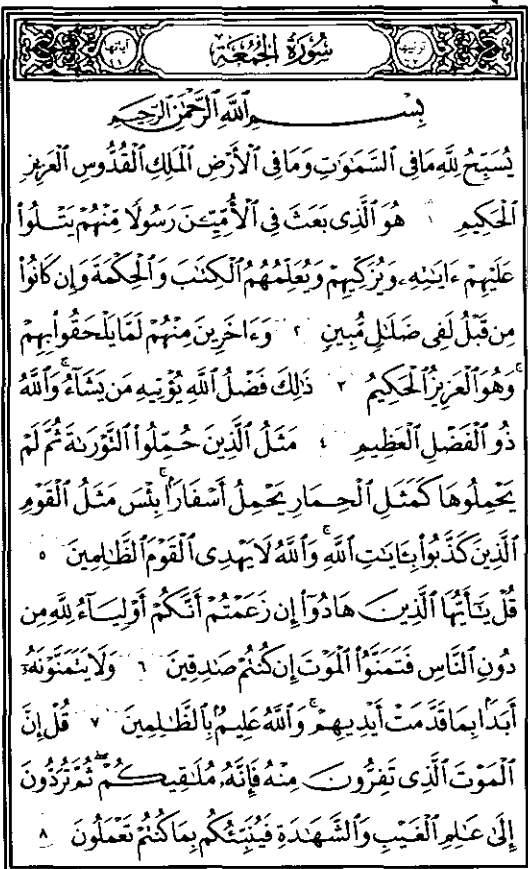 ترتيبها ٦٢ سُورَةُ الْجُمُعَةِ آياتها ١١
بِسْمِ ٱللَّهِ ٱلرَّحْمَٰنِ ٱلرَّحِيمِ
يُسَبِّحُ لِلَّهِ مَا فِي ٱلسَّمَٰوَٰتِ وَمَا فِي ٱلْأَرْضِ ٱلْمَلِكِ ٱلْقُدُّوسِ ٱلْعَزِيزِ
ٱلْحَكِيمِ ١ هُوَ ٱلَّذِي بَعَثَ فِي ٱلْأُمِّيِّـۧنَ رَسُولًا مِّنْهُمْ يَتْلُوا۟
عَلَيْهِمْ ءَايَٰتِهِۦ وَيُزَكِّيهِمْ وَيُعَلِّمُهُمُ ٱلْكِتَٰبَ وَٱلْحِكْمَةَ وَإِن كَانُوا۟
مِن قَبْلُ لَفِي ضَلَٰلٍ مُّبِينٍ ٢ وَءَاخَرِينَ مِنْهُمْ لَمَّا يَلْحَقُوا۟ بِهِمْ
ۚ وَهُوَ ٱلْعَزِيزُ ٱلْحَكِيمُ ٣ ذَٰلِكَ فَضْلُ ٱللَّهِ يُؤْتِيهِ مَن يَشَآءُ ۚ وَٱللَّهُ
ذُو ٱلْفَضْلِ ٱلْعَظِيمِ ٤ مَثَلُ ٱلَّذِينَ حُمِّلُوا۟ ٱلتَّوْرَىٰةَ ثُمَّ لَمْ
يَحْمِلُوهَا كَمَثَلِ ٱلْحِمَارِ يَحْمِلُ أَسْفَارًۢا ۚ بِئْسَ مَثَلُ ٱلْقَوْمِ
ٱلَّذِينَ كَذَّبُوا۟ بِـَٔايَٰتِ ٱللَّهِ ۚ وَٱللَّهُ لَا يَهْدِي ٱلْقَوْمَ ٱلظَّٰلِمِينَ ٥
قُلْ يَٰٓأَيُّهَا ٱلَّذِينَ هَادُوٓا۟ إِن زَعَمْتُمْ أَنَّكُمْ أَوْلِيَآءُ لِلَّهِ مِن
دُونِ ٱلنَّاسِ فَتَمَنَّوُا۟ ٱلْمَوْتَ إِن كُنتُمْ صَٰدِقِينَ ٦ وَلَا يَتَمَنَّوْنَهُۥٓ
أَبَدًۢا بِمَا قَدَّمَتْ أَيْدِيهِمْ ۚ وَٱللَّهُ عَلِيمٌۢ بِٱلظَّٰلِمِينَ ٧ قُلْ إِنَّ
ٱلْمَوْتَ ٱلَّذِي تَفِرُّونَ مِنْهُ فَإِنَّهُۥ مُلَٰقِيكُمْ ۖ ثُمَّ تُرَدُّونَ
إِلَىٰ عَٰلِمِ ٱلْغَيْبِ وَٱلشَّهَٰدَةِ فَيُنَبِّئُكُم بِمَا كُنتُمْ تَعْمَلُونَ ٨